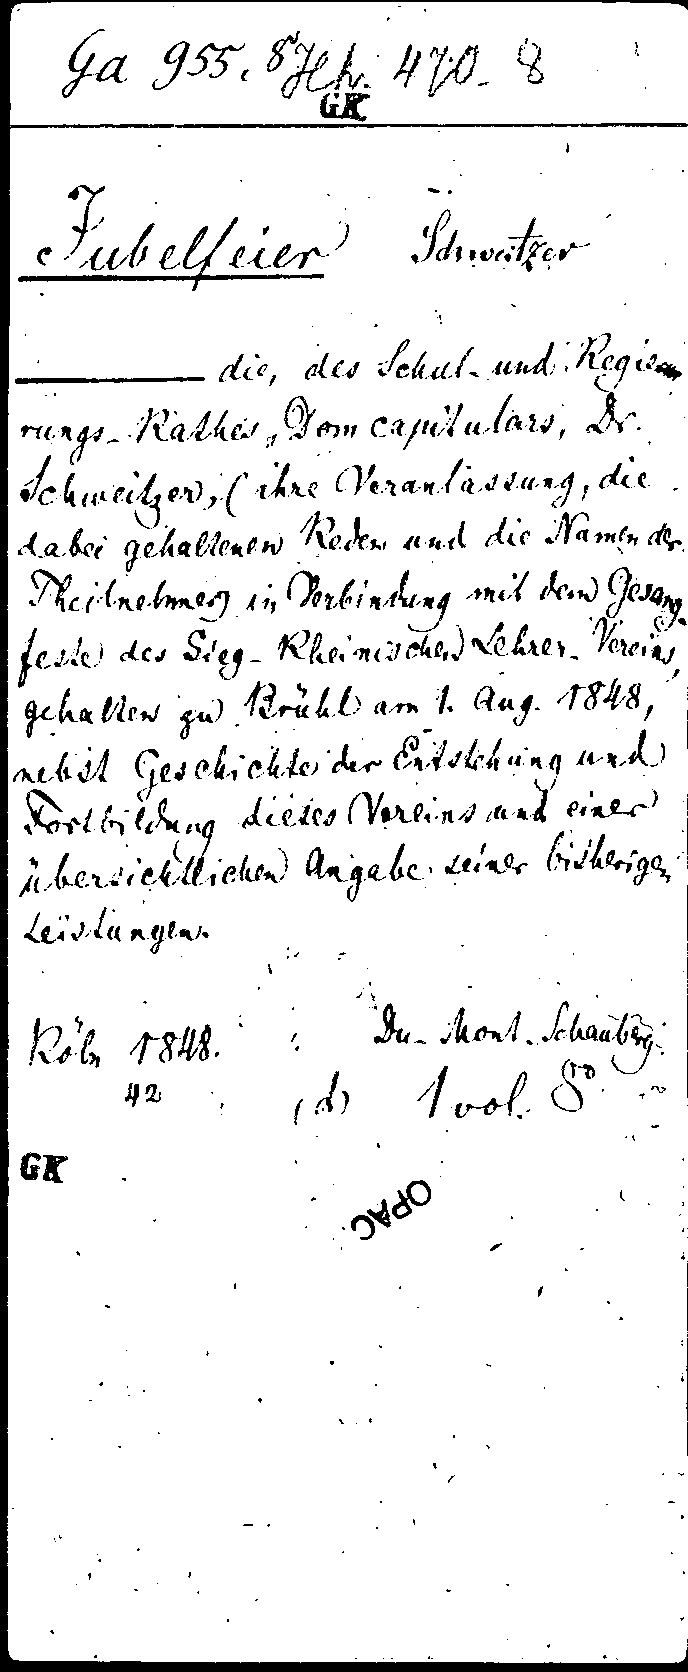 Ga 955. 8° Hh. 470. 8
GK
Jubelfeier Schweitzer
die, des Schul- und Regie-
rungs-Rathes, Domcapitulars, Dr.
Schweitzer, (ihre Veranlassung, die
dabei gehaltenen Reden und die Namen der
Theilnehmer) in Verbindung mit dem Gesang-
feste des Sieg-Rheinischen Lehrer-Vereins,
gehalten zu Brühl am 1. Aug. 1848,
nebst Geschichte der Entstehung und
Fortbildung dieses Vereins und einer
übersichtlichen Angabe seiner bisherigen
Leistungen.
Köln 1848. Du-Mont-Schauberg.
42 (d) 1 vol. 8°
GK
OPAC